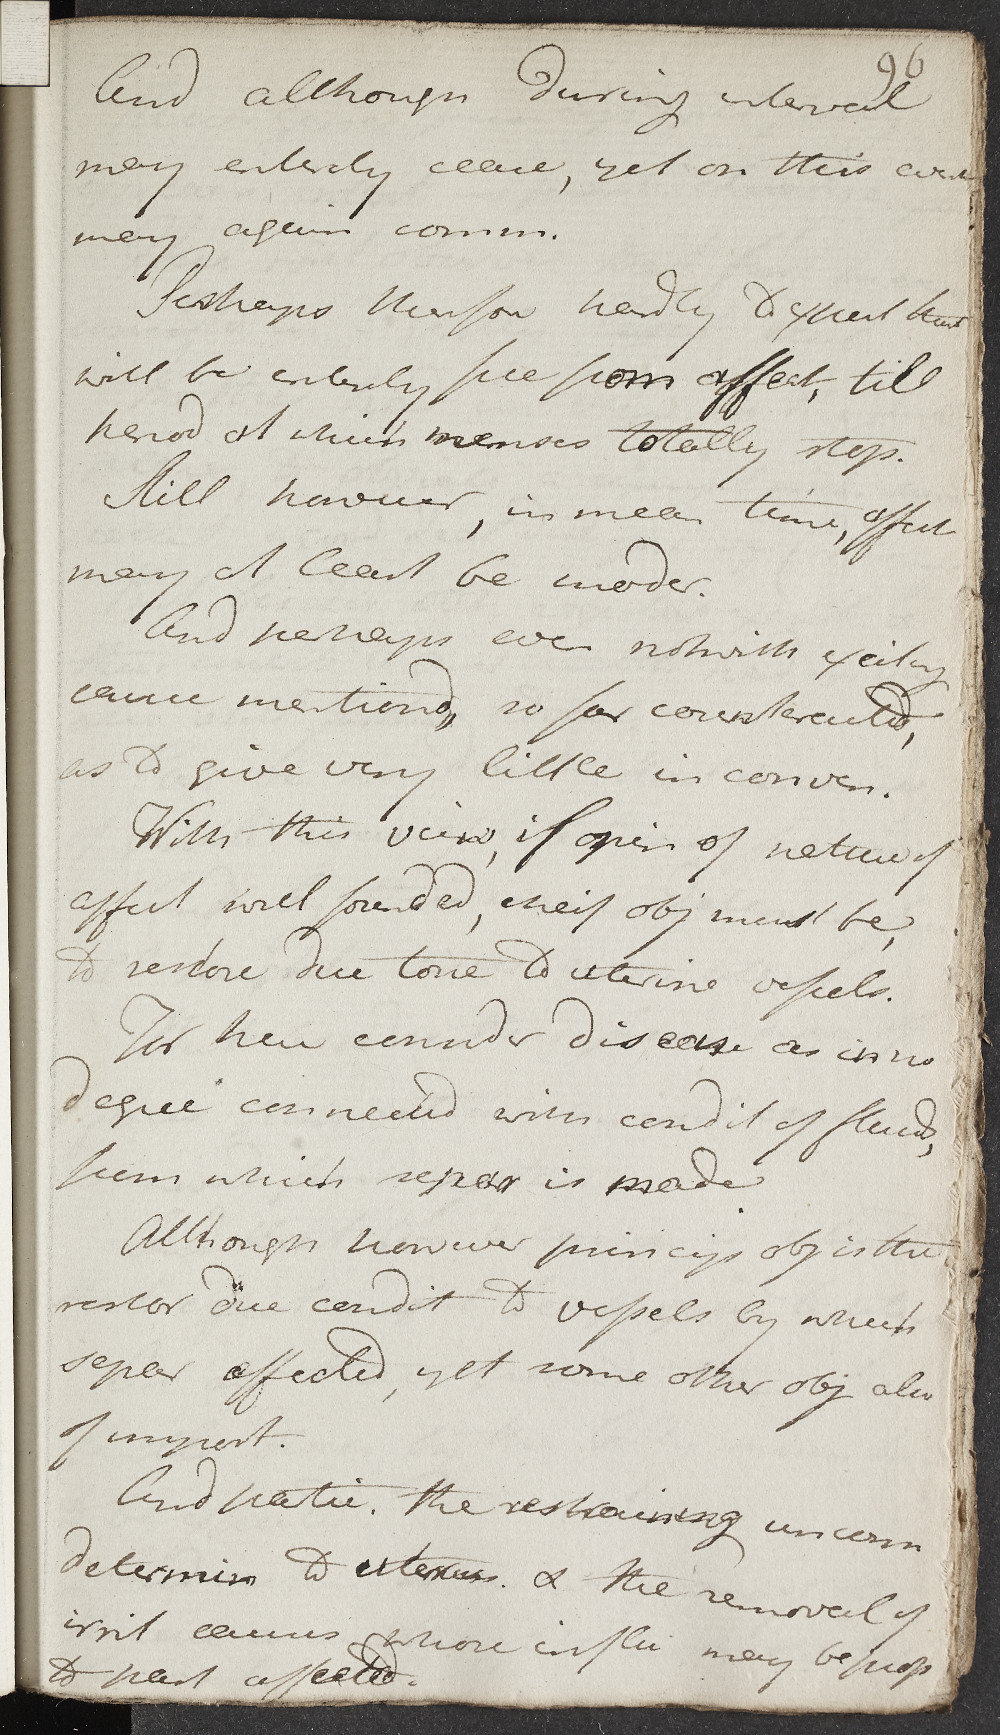 96
And although during interval
may enterely cease, yet on this
may again comm.
Perhaps therefore hardly to expect that
will be enterely free from affect, till
period at which menses totally stop.
Still however, in mean time, affect
may at least be moder.
And perhaps even notwith exciting
cause mentiond, so far counteracted,
as to give very little inconven.
With this view, if opin of nature of
affect well founded, cheif obj must be,
to restore due tone to uterine vessels.
For here consider disease as in no
degree connected with condit of fluids,
from which separ is made
Although however princip obj is thus
restor due condit to vessels by which
separ affected, yet some other obj also
of import.
And partic. the restraining uncomm
determin to uterus. & the removal of
irrit causes whose influ may be prop
to part affected.